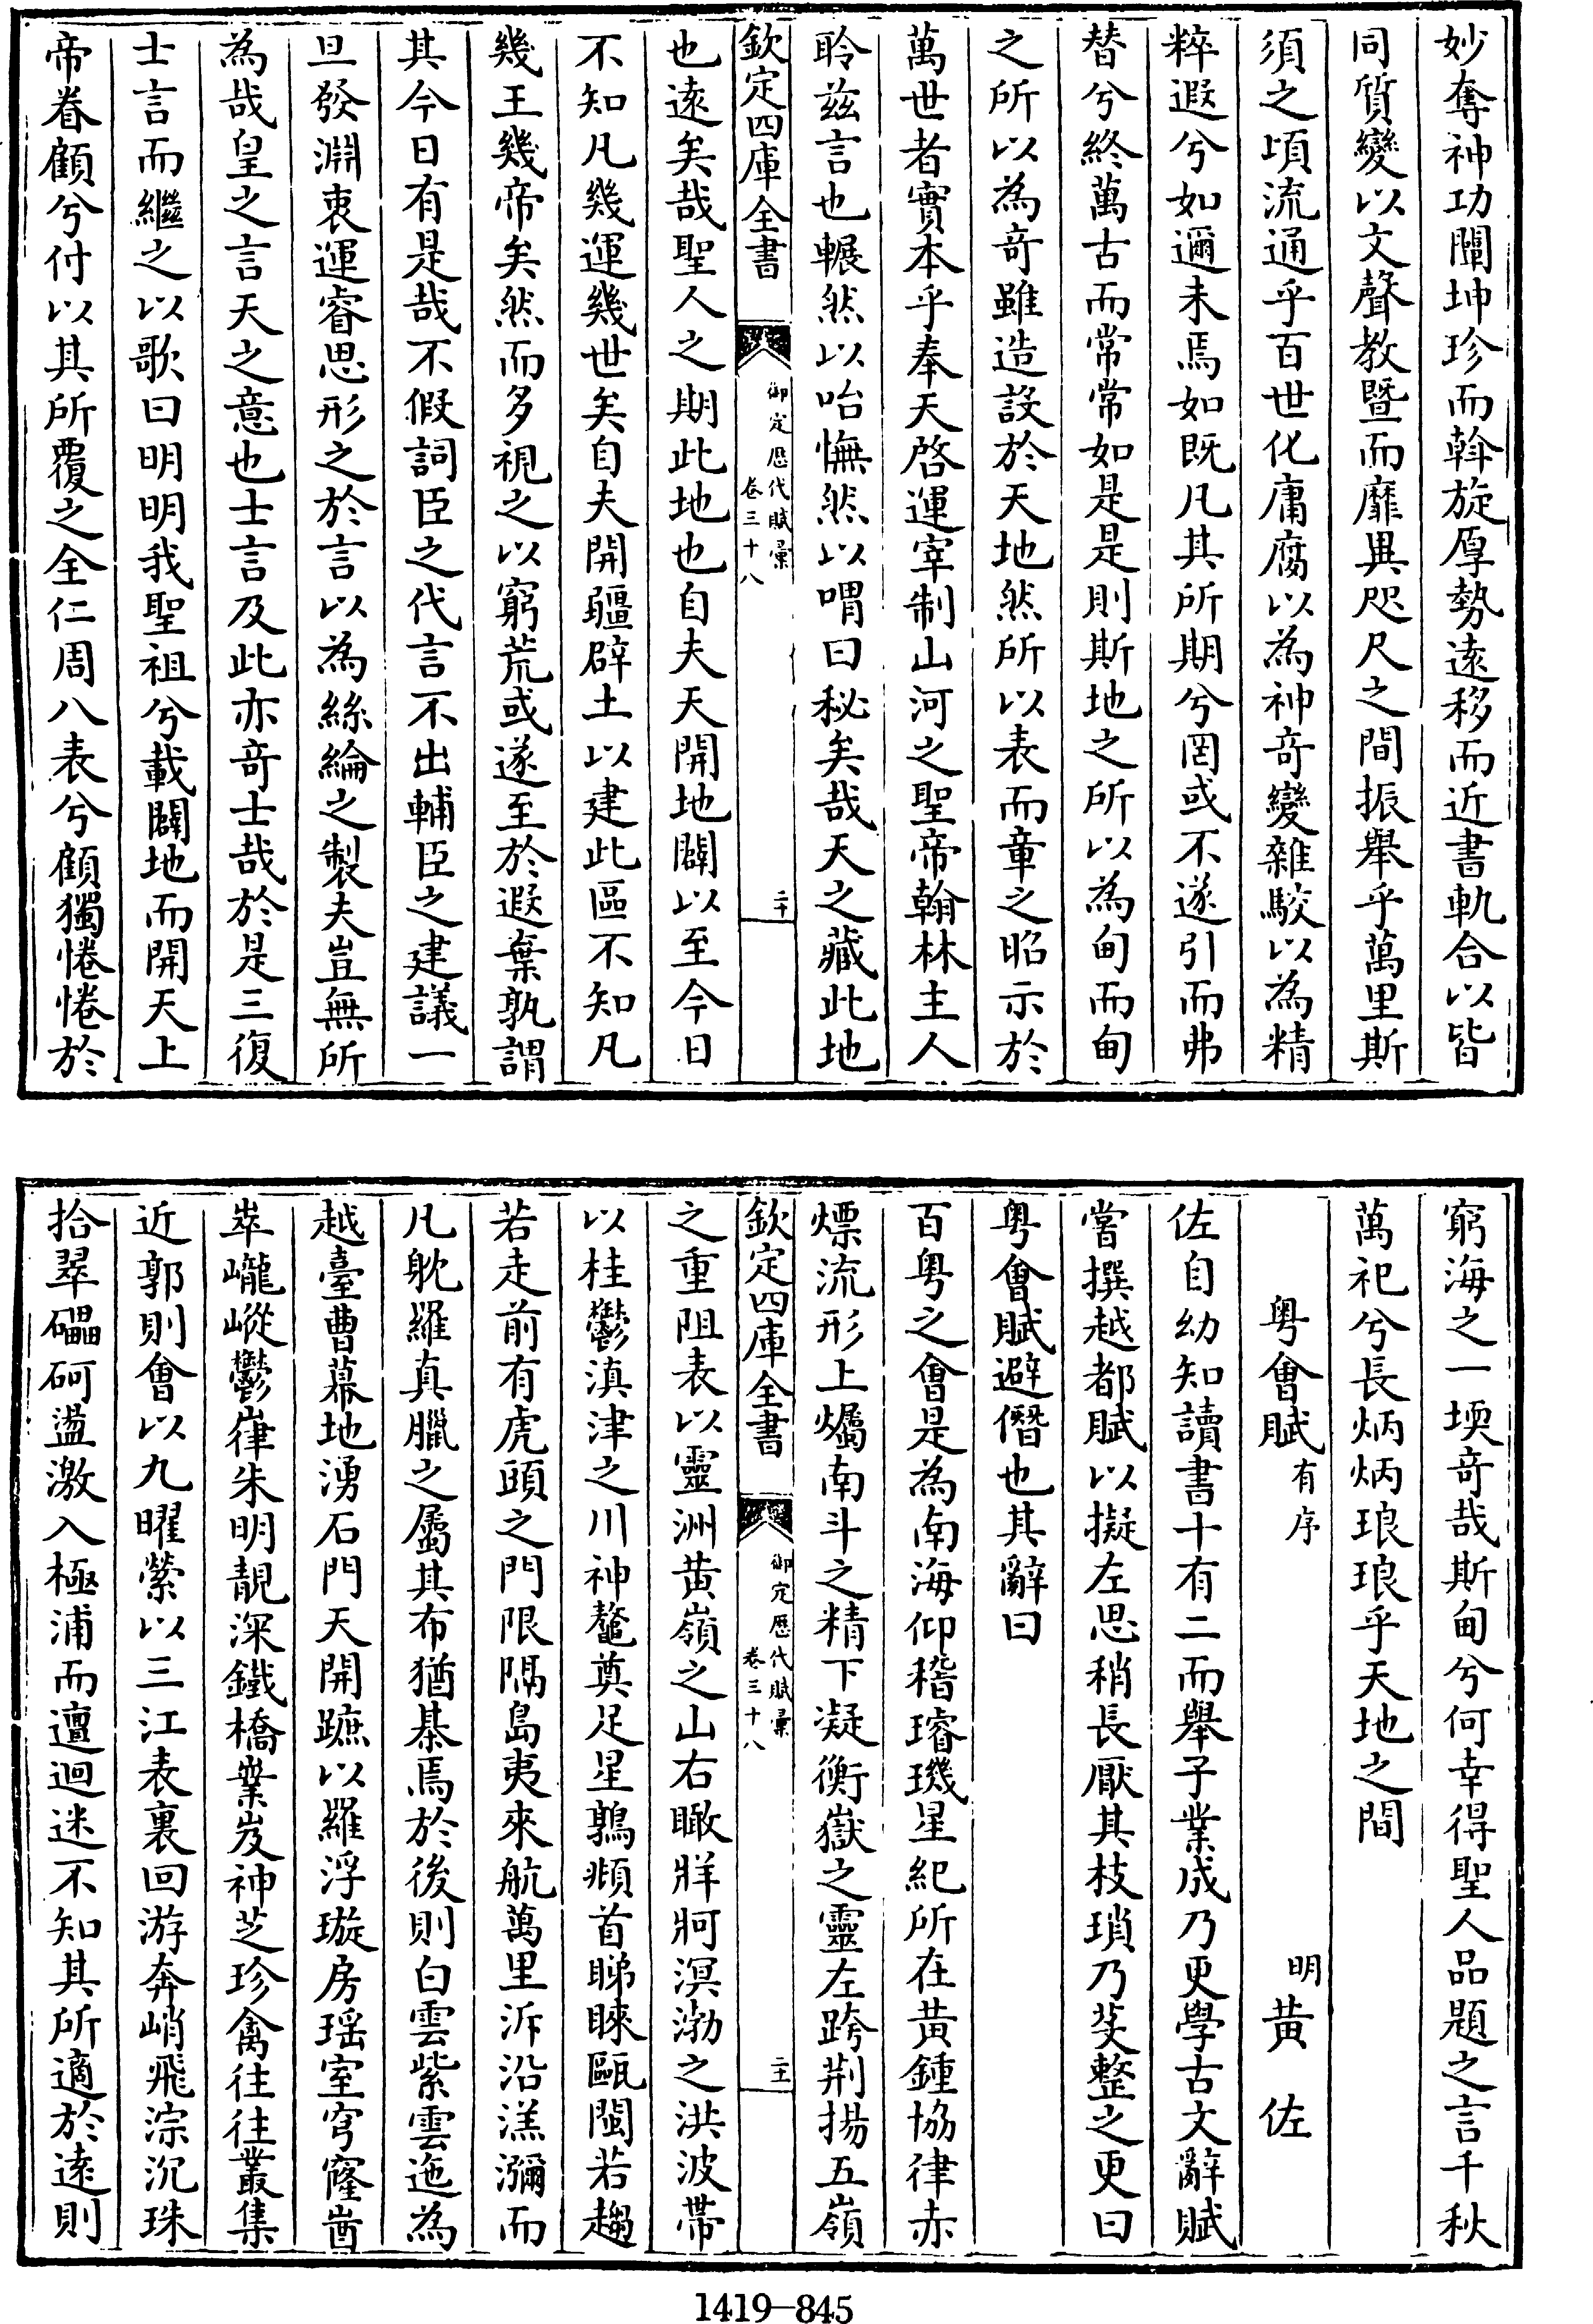 妙奪神功闡坤珍而斡旋厚勢遠移而近書軌合以皆
同質變以文聲教暨而靡異咫尺之間振舉乎萬里斯
須之頃流通乎百世化庸腐以為神奇變雜駁以為精
粹遐兮如邇未焉如既凡其所期兮罔或不遂引而弗
替兮終萬古而常常如是是則斯地之所以為甸而甸
之所以為奇雖造設於天地然所以表而章之昭示於
萬世者實本乎奉天啓運宰制山河之聖帝翰林主人
聆兹言也囅然以咍憮然以喟曰秘矣哉天之藏此地
欽定四庫全書
御定歷代賦彙
卷三十八
二十
也遠矣哉聖人之期此地也自夫天開地闢以至今日
不知凡幾運幾世矣自夫開疆辟土以建此區不知凡
幾王幾帝矣然而多視之以窮荒或遂至於遐棄孰謂
其今日有是哉不假詞臣之代言不出輔臣之建議一
旦發淵衷運睿思形之於言以為絲綸之製夫豈無所
為哉皇之言天之意也士言及此亦奇士哉於是三復
士言而繼之以歌曰明明我聖祖兮載闢地而開天上
帝眷顧兮付以其所覆之全仁周八表兮顧獨惓惓於
窮海之一堧奇哉斯甸兮何幸得聖人品題之言千秋
萬祀兮長炳炳琅琅乎天地之間
粤會賦有序 明黄佐
佐自幼知讀書十有二而舉子業成乃更學古文辭賦
嘗撰越都賦以擬左思稍長厭其枝瑣乃芟整之更曰
粤會賦避僭也其辭曰
百粤之會是為南海仰稽璿璣星紀所在黄鍾協律赤
熛流形上爥南斗之精下凝衡嶽之靈左跨荆揚五嶺
欽定四庫全書
御定歷代賦彙
卷三十八
二十一
之重阻表以靈洲黄嶺之山右瞰牂牁溟渤之洪波帶
以桂鬱滇津之川神鼇奠足星鶉頫首睇睞甌閩若趨
若走前有虎頭之門限隔島夷來航萬里泝沿渼瀰而
凡躭羅真臘之屬其布猶棊焉於後則白雲紫雲迤為
越臺曹幕地湧石門天開蹠以羅浮璇房瑶室穹窿崷
崒巃嵷鬱嵂朱明靚深鐵橋業岌神芝珍禽往往叢集
近郭則會以九曜縈以三江表裏回游奔峭飛淙沉珠
拾翠礧砢盪激入極浦而邅迴迷不知其所適於遠則
1419-845